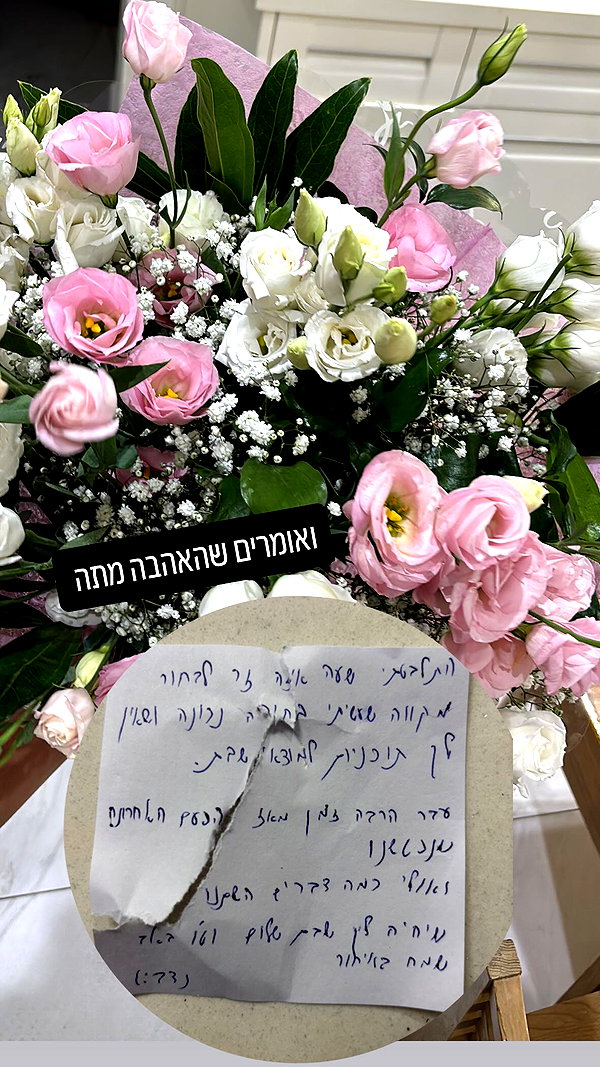 ואומרים שהאהבה מתה
התלבטתי שעה איזה זר לבחור
מקווה שעשיתי בחירה נכונה ושאין
לך תוכניות למוצאי שבת.
עבר הרבה זמן מאז הפעם האחרונה
שנפגשנו
ואולי כמה דברים השתנו
שיהיה לך שבת שלום וטו באב
שמח באיחור
נדב :)